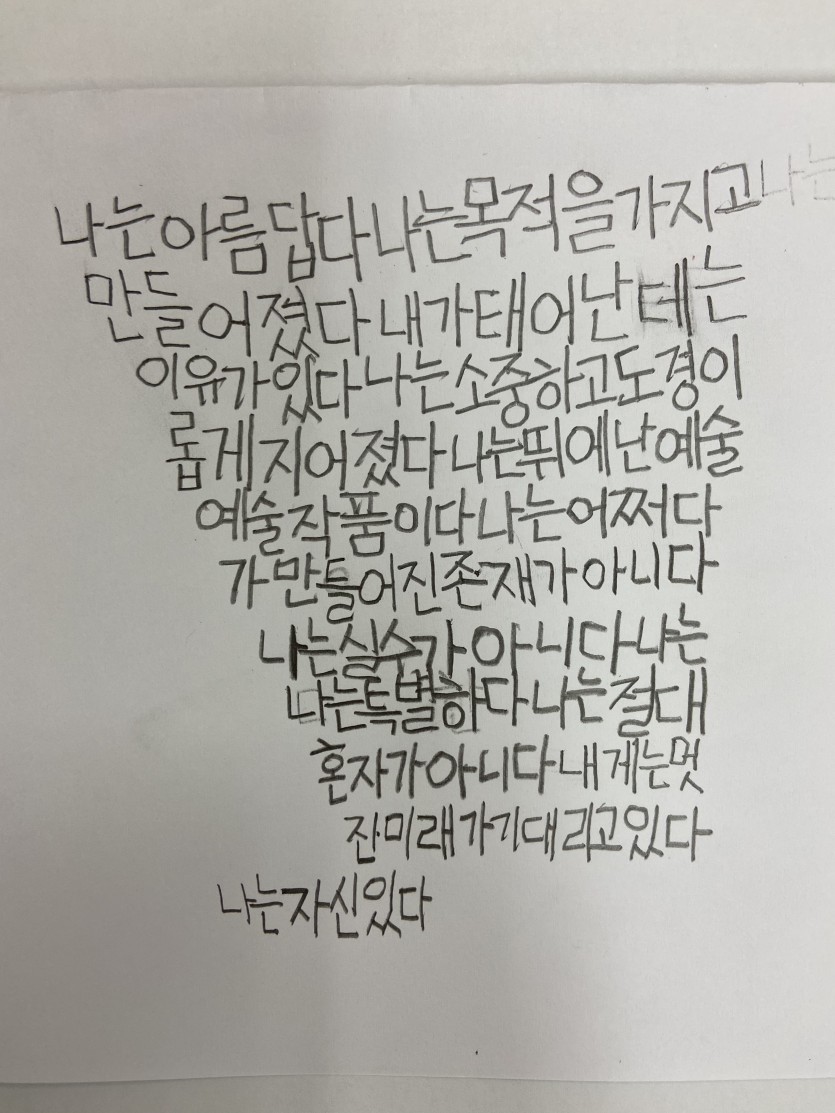 나는아름답다나는목적을가지고나는
만들어졌다내가태어난테는
이유가있다나는소중하고도경이
롭게지어졌다나는뛰에난예술
예술작품이다나는어쩌다
가만들어진존재가아니다
나는실수가아니다나는
나는특별하다나는절대
혼자가아니다내게는멋
진미래가기대리고있다
나는자신있다